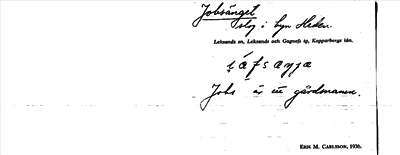 Jobsänget
slog i byn Heden.
Leksands sn, Leksands och Gagnefs tg, Kopparbergs län.
Jobs är ett gårdsnamn.
ERIK M. CARLSSON, 1936.